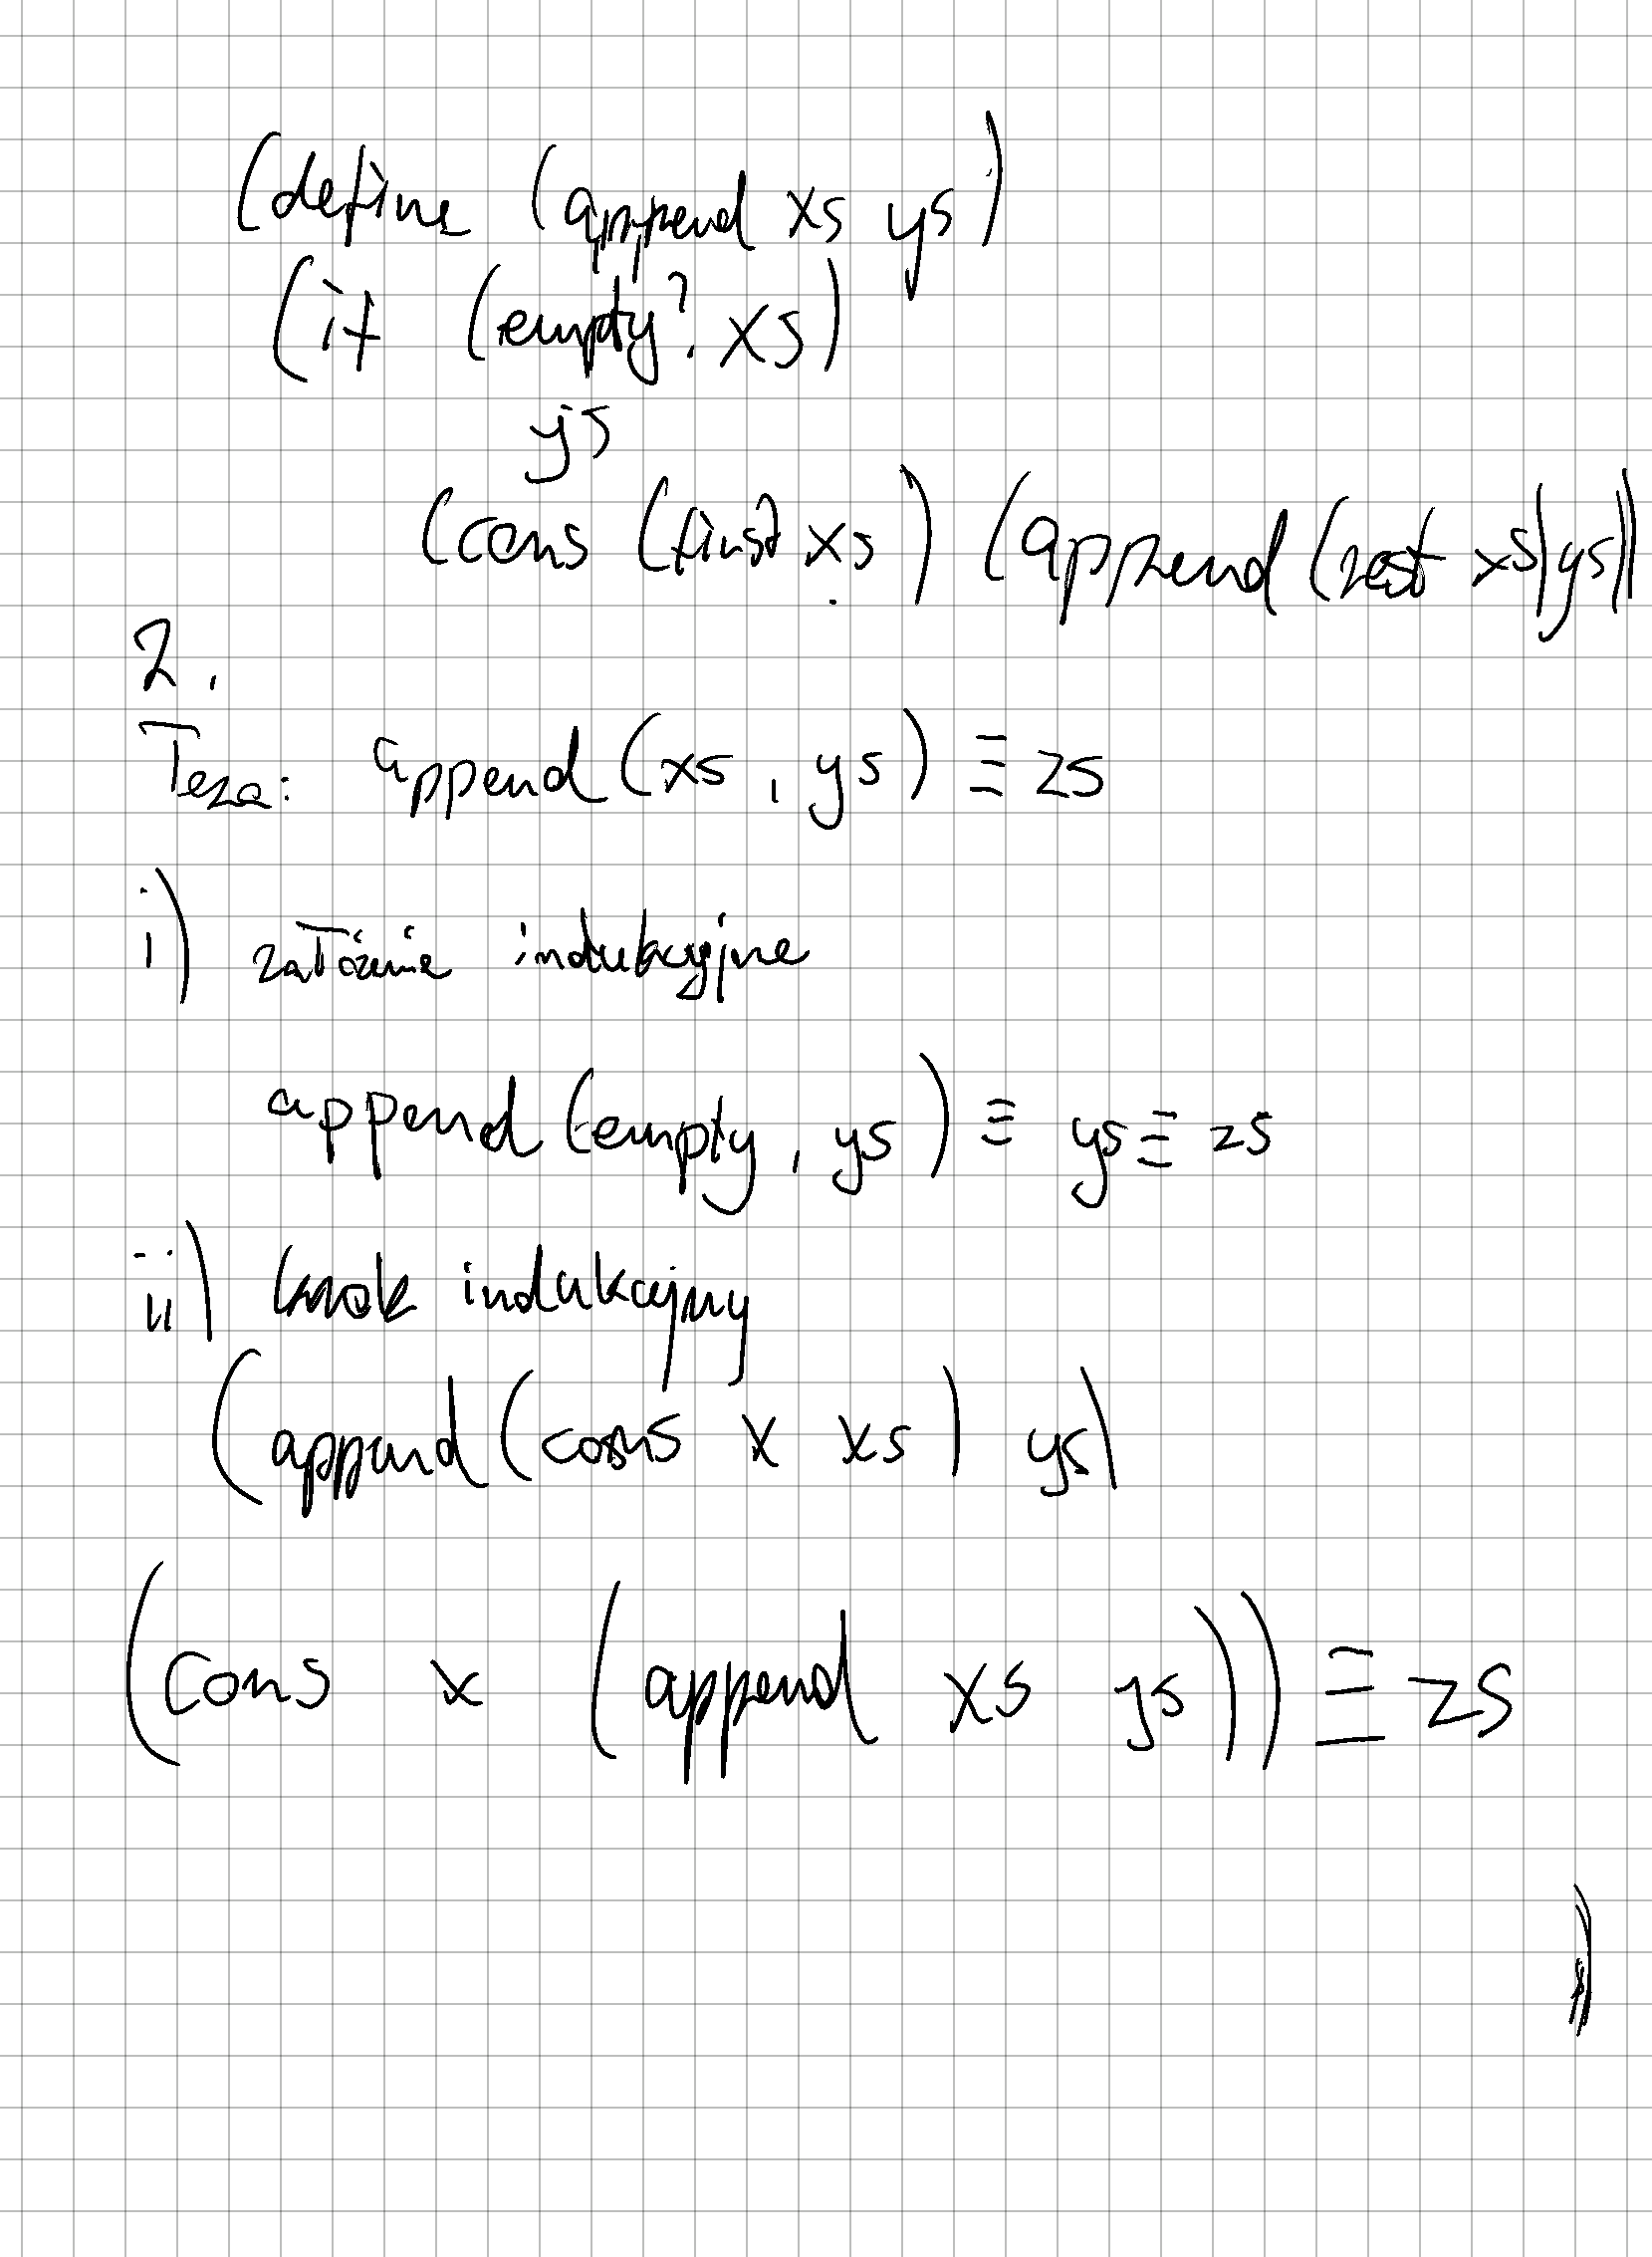 (define (append xs ys)
(if (empty? xs)
ys
(cons (first xs) (append (rest xs) ys))
2.
Teza: append(xs, ys) ≡ zs
i) założenie indukcyjne
append(empty, ys) ≡ ys ≡ zs
ii) krok indukcyjny
(append (cons x xs) ys)
(cons x (append xs ys)) ≡ zs